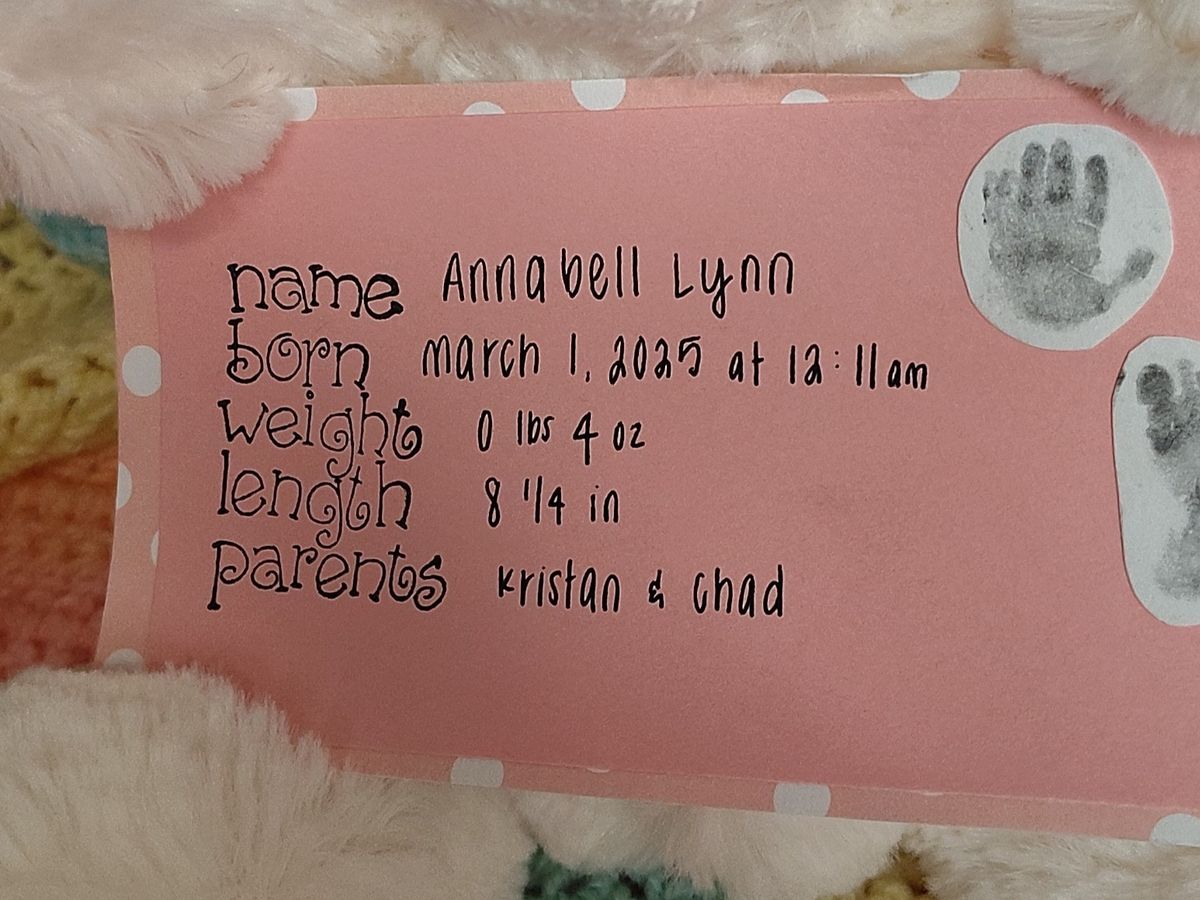 name Annabell Lynn
born march 1, 2025 at 12:11am
weight 0 lbs 4 oz
length 8 1/4 in
parents Kristan & Chad